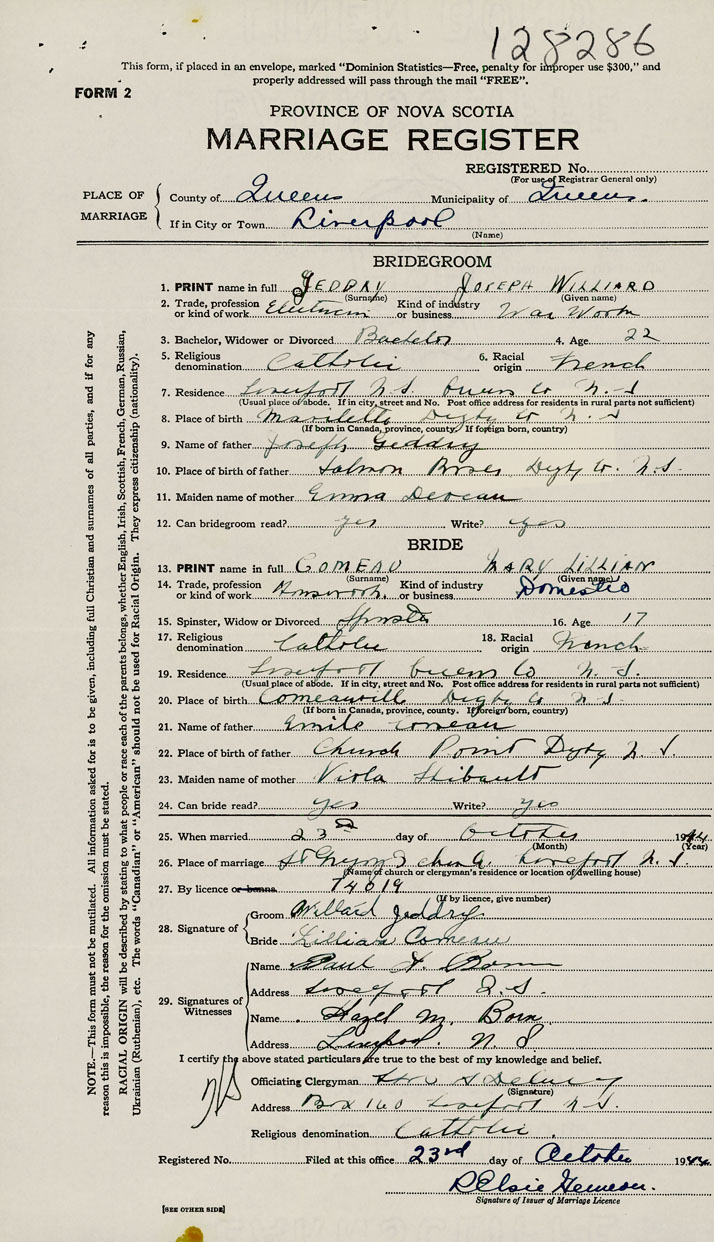 128286
This form, if placed in an envelope, marked "Dominion Statistics—Free, penalty for improper use $300," and
properly addressed will pass through the mail "FREE".
FORM 2
PROVINCE OF NOVA SCOTIA
MARRIAGE REGISTER
REGISTERED No.
(For use of Registrar General only)
PLACE OF MARRIAGE
County of Queens Municipality of Queens.
If in City or Town Liverpool
(Name)
BRIDEGROOM
1. PRINT name in full GEDDRY JOSEPH WILLIARD
(Surname) (Given name)
2. Trade, profession or kind of work Kind of industry or business War Work
3. Bachelor, Widower or Divorced Bachelor 4. Age 22
5. Religious denomination Catholic 6. Racial origin French
7. Residence Liverpool N.S. Queens Co N.S
(Usual place of abode. If in city, street and No. Post office address for residents in rural parts not sufficient)
8. Place of birth Digby Co N.S
(If born in Canada, province, county. If foreign born, country)
9. Name of father Joseph Geddry
10. Place of birth of father Salmon River Digby Co. N.S.
11. Maiden name of mother Emma Deveau
12. Can bridegroom read? yes Write? yes
BRIDE
13. PRINT name in full COMEAU MARY LILLIAN
(Surname) (Given name)
14. Trade, profession or kind of work Housework. Kind of industry or business Domestic
15. Spinster, Widow or Divorced Spinster 16. Age 17
17. Religious denomination Catholic 18. Racial origin French
19. Residence Liverpool Queens Co N.S.
(Usual place of abode. If in city, street and No. Post office address for residents in rural parts not sufficient)
20. Place of birth Comeauville Digby Co N.S.
(If born in Canada, province, county. If foreign born, country)
21. Name of father Emile Comeau
22. Place of birth of father Church Point Digby N.S.
23. Maiden name of mother Viola Thibault
24. Can bride read? yes Write? yes
25. When married 23rd day of October 1944
(Month) (Year)
26. Place of marriage St Gregory's church Liverpool N.S.
(Name of church or clergyman's residence or location of dwelling house)
27. By licence or banns 74619
(If by licence, give number)
28. Signature of
Groom Willard Jeddry
Bride Lillian Comeau
29. Signatures of Witnesses
Name Paul
Address Liverpool N.S.
Name Hazel M.
Address Liverpool. N S
I certify the above stated particulars are true to the best of my knowledge and belief.
Officiating Clergyman
(Signature)
Address Box 160 Liverpool N.S.
Religious denomination Catholic.
Registered No. Filed at this office 23rd day of October 1944
Signature of Issuer of Marriage Licence
[SEE OTHER SIDE]
NOTE.—This form must not be mutilated. All information asked for is to be given, including full Christian and surnames of all parties, and if for any
reason this is impossible, the reason for the omission must be stated.
RACIAL ORIGIN will be described by stating to what people or race each of the parents belongs, whether English, Irish, Scottish, French, German, Russian,
Ukrainian (Ruthenian), etc. The words "Canadian" or "American" should not be used for Racial Origin. They express citizenship (nationality).